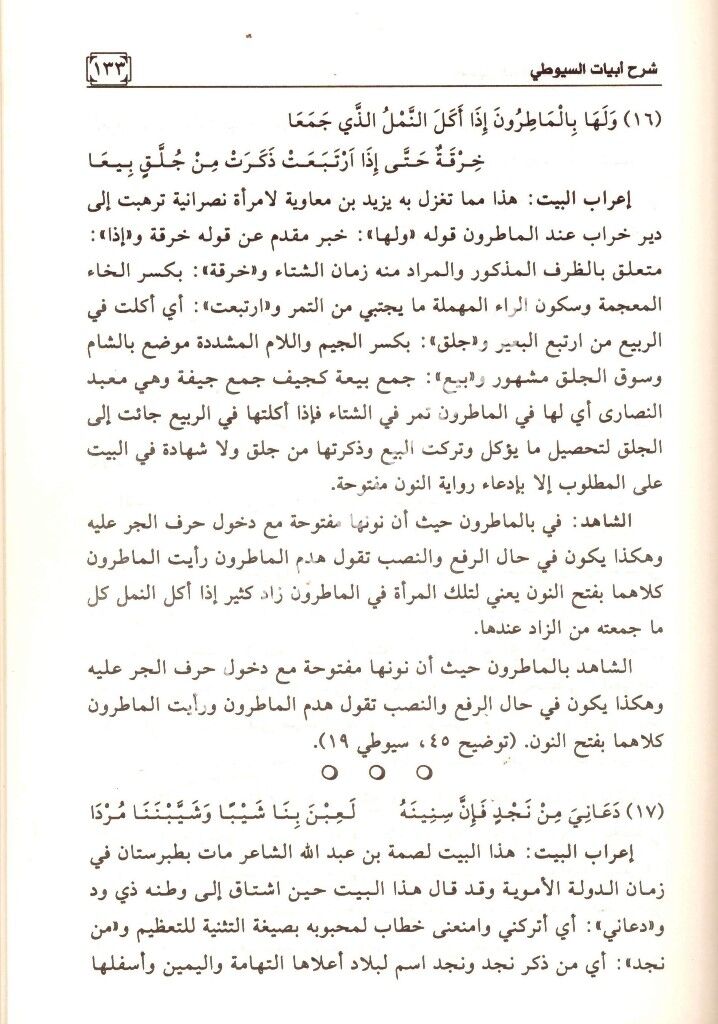 شرح أبيات السيوطي
١٣٣
(١٦) وَلَهَا بِالْمَاطِرُونَ إِذَا أَكَلَ النَّمْلُ الذَّي جَمَعَا
خِرْقَةٌ حَتَّى إِذَا ارْتَبَعَتْ ذَكَرَتْ مِنْ جُلَّقٍ بِيعَا
إعراب البيت: هذا مما تغزل به يزيد بن معاوية لامرأة نصرانية ترهبت إلى
دير خراب عند الماطرون قوله «ولها»: خبر مقدم عن قوله خرقة و«إذا»:
متعلق بالظرف المذكور والمراد منه زمان الشتاء و«خرقة»: بكسر الخاء
المعجمة وسكون الراء المهملة ما يجتبي من التمر و«ارتبعت»: أي أكلت في
الربيع من ارتبع البعير و«جلق»: بكسر الجيم واللام المشددة موضع بالشام
وسوق الجلق مشهور و«بيع»: جمع بيعة كجيف جمع جيفة وهي معبد
النصارى أي لها في الماطرون تمر في الشتاء فإذا أكلتها في الربيع جائت إلى
الجلق لتحصيل ما يؤكل وتركت البيع وذكرتها من جلق ولا شهادة في البيت
على المطلوب إلا بإدعاء رواية النون مفتوحة.
الشاهد: في بالماطرون حيث أن نونها مفتوحة مع دخول حرف الجر عليه
وهكذا يكون في حال الرفع والنصب تقول هدم الماطرون رأيت الماطرون
كلاهما بفتح النون يعني لتلك المرأة في الماطرون زاد كثير إذا أكل النمل كل
ما جمعته من الزاد عندها.
الشاهد بالماطرون حيث أن نونها مفتوحة مع دخول حرف الجر عليه
وهكذا يكون في حال الرفع والنصب تقول هدم الماطرون ورأيت الماطرون
كلاهما بفتح النون. (توضيح ٤٥، سيوطي ١٩).
(١٧) دَعَانِيَ مِنْ نَجْدٍ فَإِنَّ سِنِينَهُ لَعِبْنَ بِنَا شَيْبًا وَشَيَّبْنَنَا مُرْدَا
إعراب البيت: هذا البيت لصمة بن عبد الله الشاعر مات بطبرستان في
زمان الدولة الأموية وقد قال هذا البيت حين اشتاق إلى وطنه ذي ود
و«دعاني»: أي أتركني وامنعنى خطاب لمحبوبه بصيغة التثنية للتعظيم و«من
نجد»: أي من ذكر نجد ونجد اسم لبلاد أعلاها التهامة واليمين وأسفلها